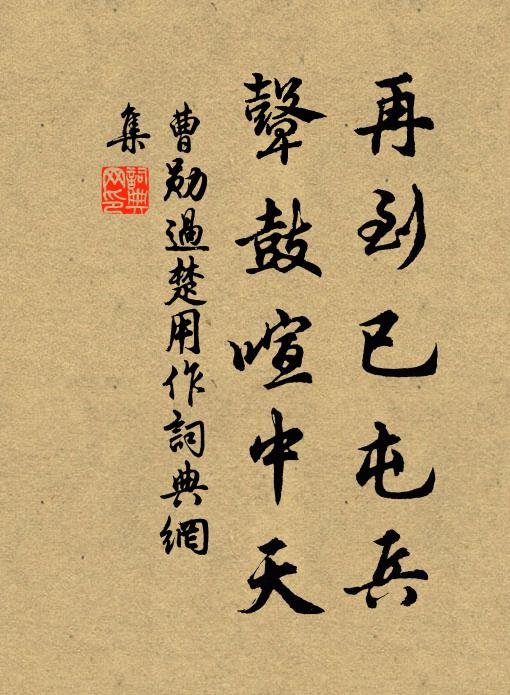 再到已屯兵
鼙鼓喧中天
曹勛過楚用作詞典網
集
詞典
网印